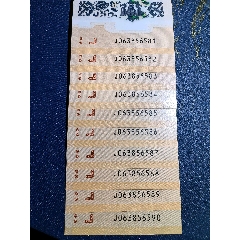 J063856581
J063856582
J063856583
J063856584
J063856585
J063856586
J063856587
J063856588
J063856589
J063856590